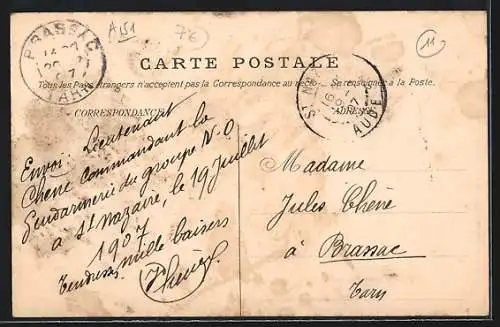 A151
76
11
BRASSAC
TARN
CARTE POSTALE
Tous les Pays étrangers n'acceptent pas la Correspondance au recto. Se renseigner à la Poste.
CORRESPONDANCE
ADRESSE
AUDE
Envoi: Lieutenant
Chêne commandant la
Gendarmerie du groupe N.O
a St Nazaire, le 19 Juillet
1907
Tendresses mille baisers
JChêne
Madame
Jules Chêne
à Brassac
Tarn